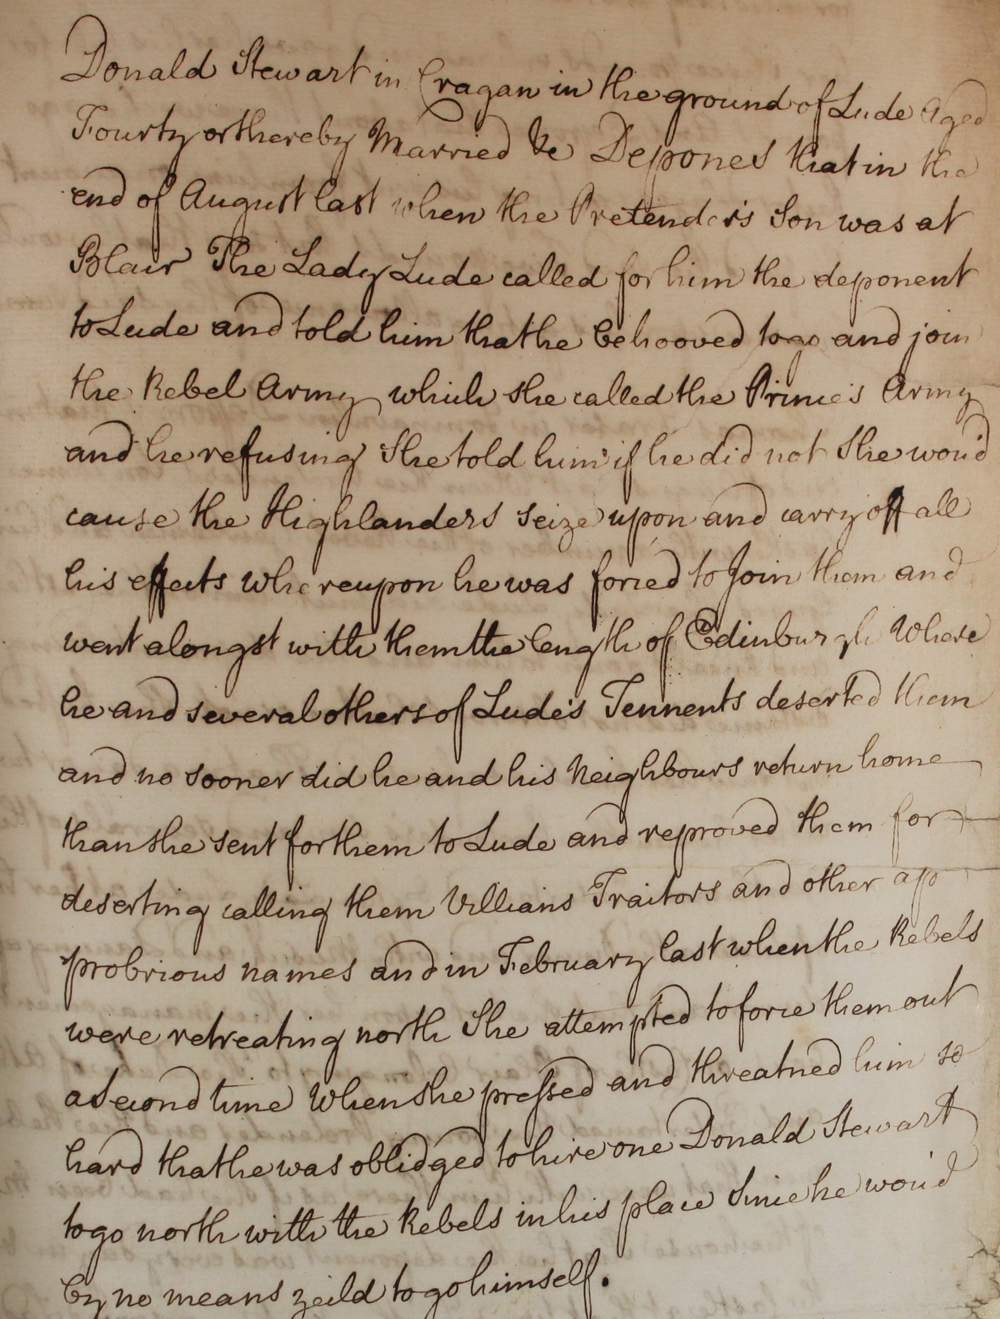 Donald Stewart in Cragan in the ground of Lude Aged
Fourty or thereby Married &c Depones that in the
end of August last when the Pretender's Son was at
Blair The Lady Lude called for him the deponent
to Lude and told him that he behooved to go and join
the Rebel Army which she called the Prince's Army
and he refusing She told him if he did not She wou'd
cause the Highlanders seize upon and carry off all
his effects whereupon he was forced to Join them and
went alongst with them the length of Edinburgh Where
he and several others of Lude's Tennents deserted them
and no sooner did he and his Neighbours return home
than she sent for them to Lude and reproved them for
deserting calling them Villians Traitors and other ap
probrious names and in February last when the Rebels
were retreating north She attempted to force them out
a Second time When she pressed and threatned him so
hard that he was oblidged to hire one Donald Stewart
to go north with the Rebels in his place Since he wou'd
by no means yeild to go himself.